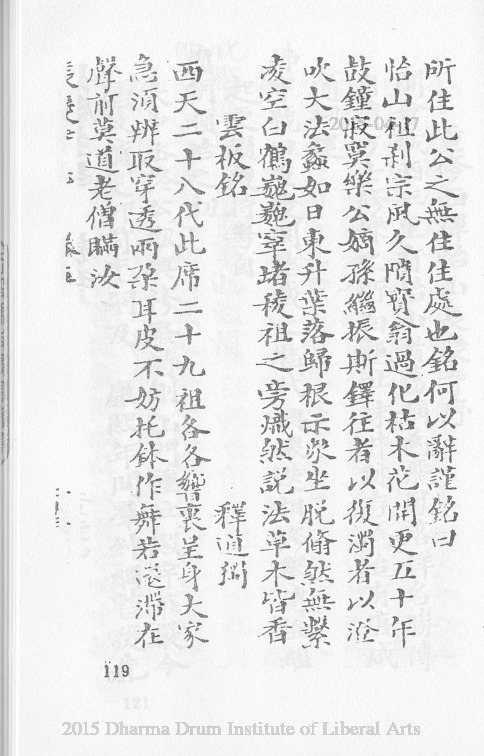 所住此公之無住住處也銘何以辭謹銘曰
怡山祖刹宗風久閴寶翁過化枯木花開更五十年
鼓鐘寂寞樂公嫡孫繼振斯鐸往者以復濁者以澄
吹大法蠡如日東升葉落歸根示寂坐脫翛然無繫
凌空白鶴巍巍窣堵稜祖之旁熾然說法草木皆香
雲板銘 釋道
西天二十八代此席二十九祖各各響裏呈身大家
急須辦取穿透兩朶耳皮不妨托鉢作舞若還滯在
聲前莫道老僧瞞汝
119
2015 Dharma Drum Institute of Liberal Arts